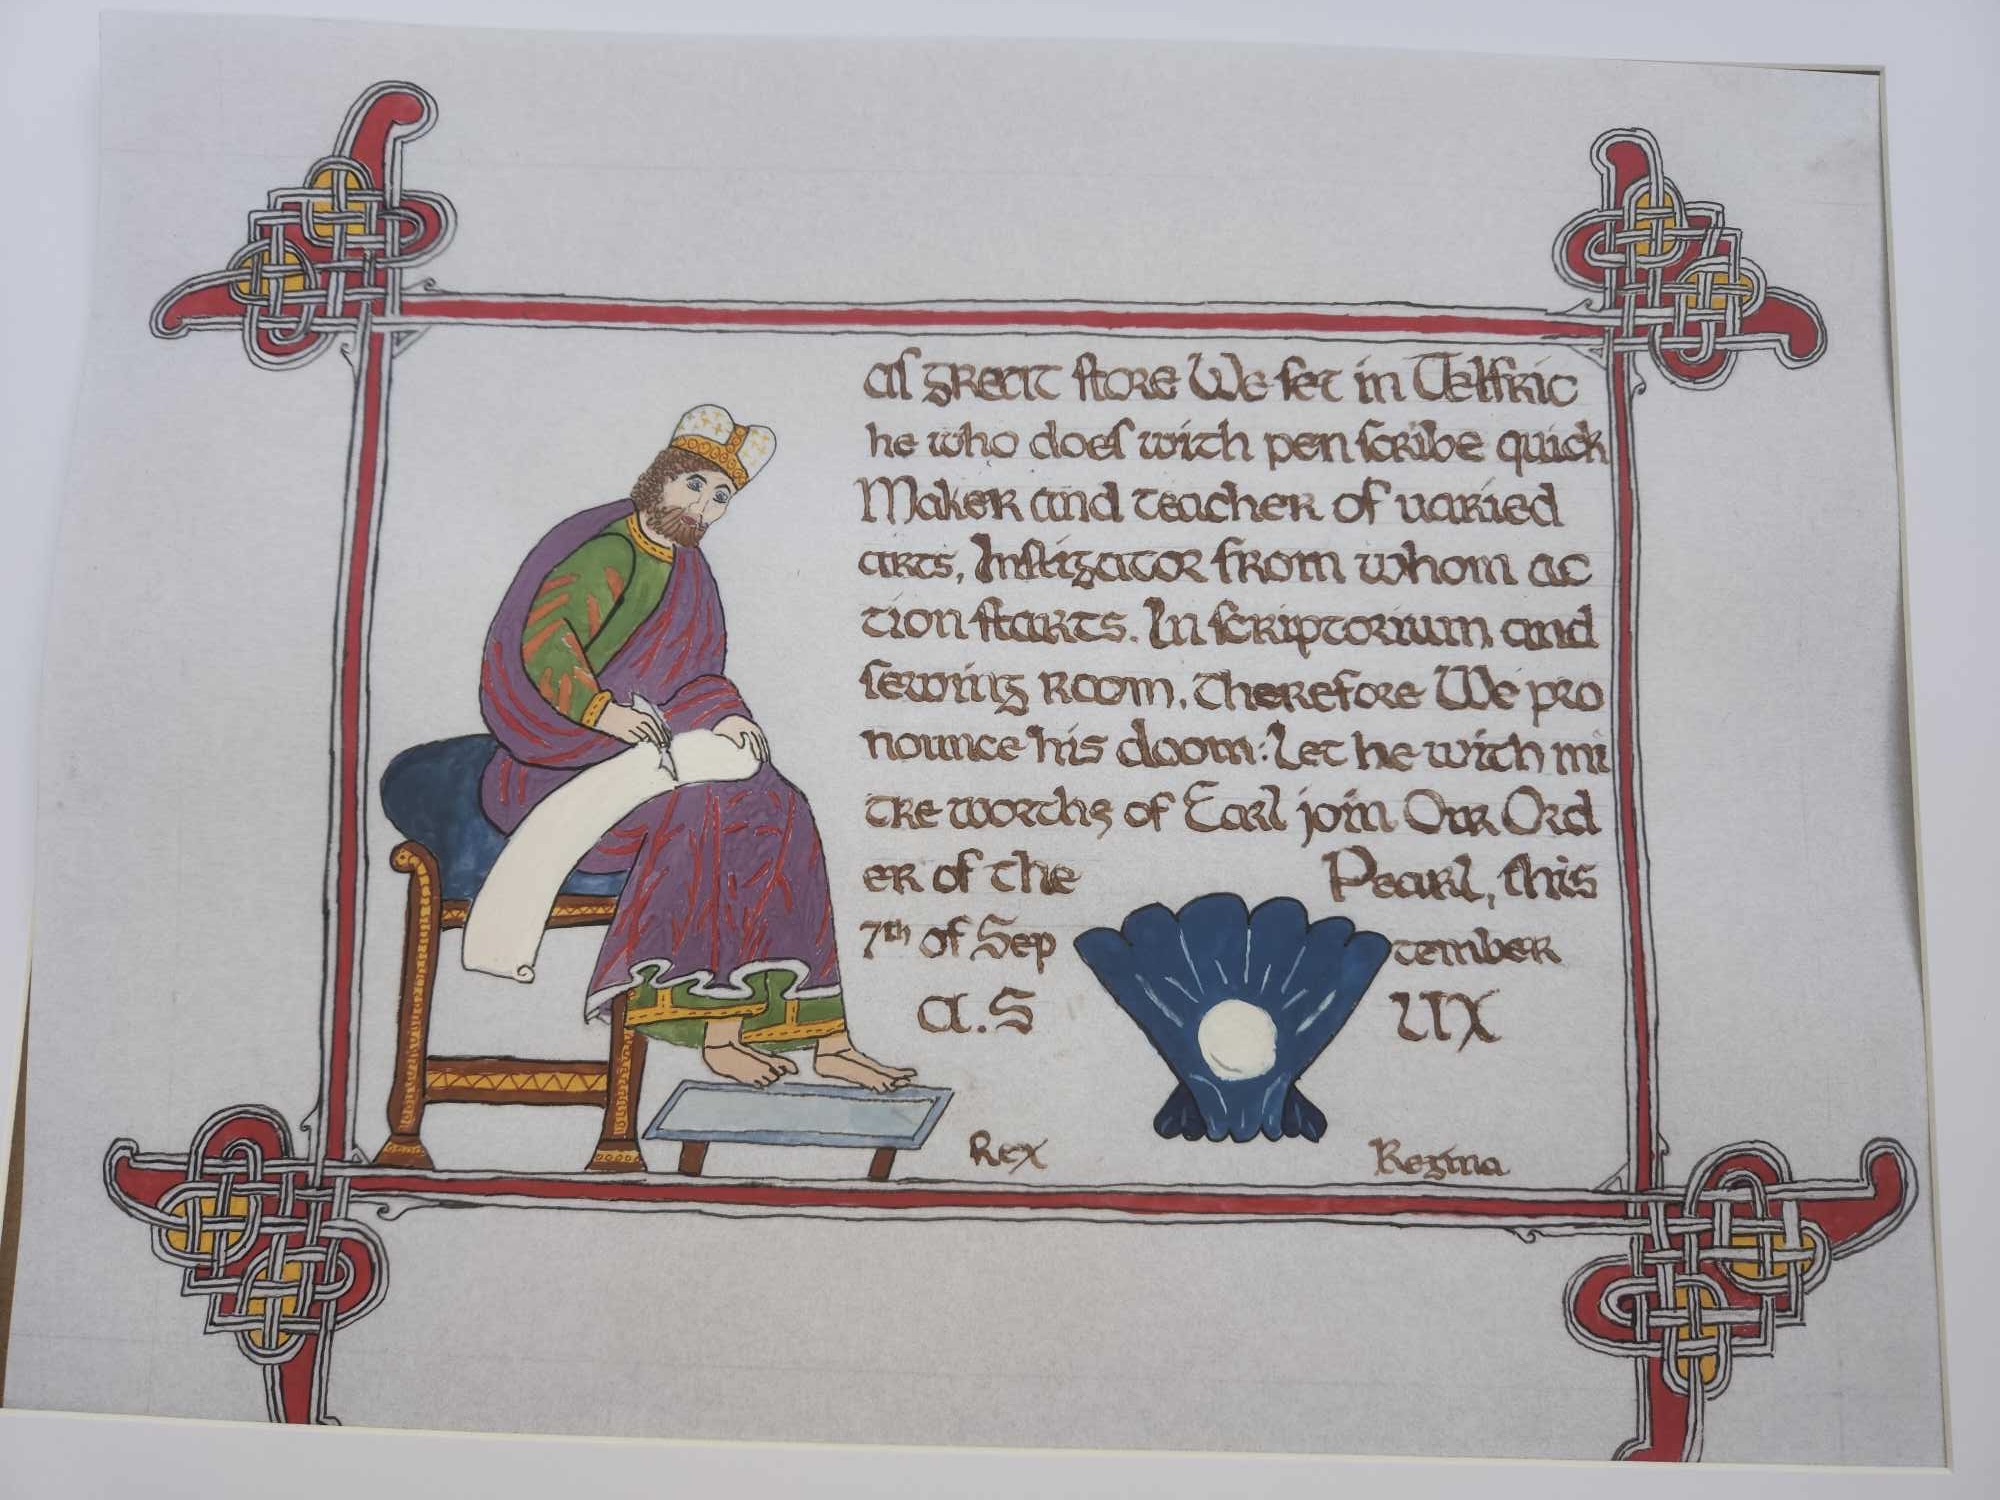 As great store We set in Aelfric
he who does with pen scribe quick
Maker and teacher of varied
arts, Instigator from whom ac
tion starts. In scriptorium and
sewing room, therefore We pro
nounce his doom: Let he with mi
tre worthy of Earl join Our Ord
er of the Pearl, this
7th of September
A.S LIX
Rex Regina